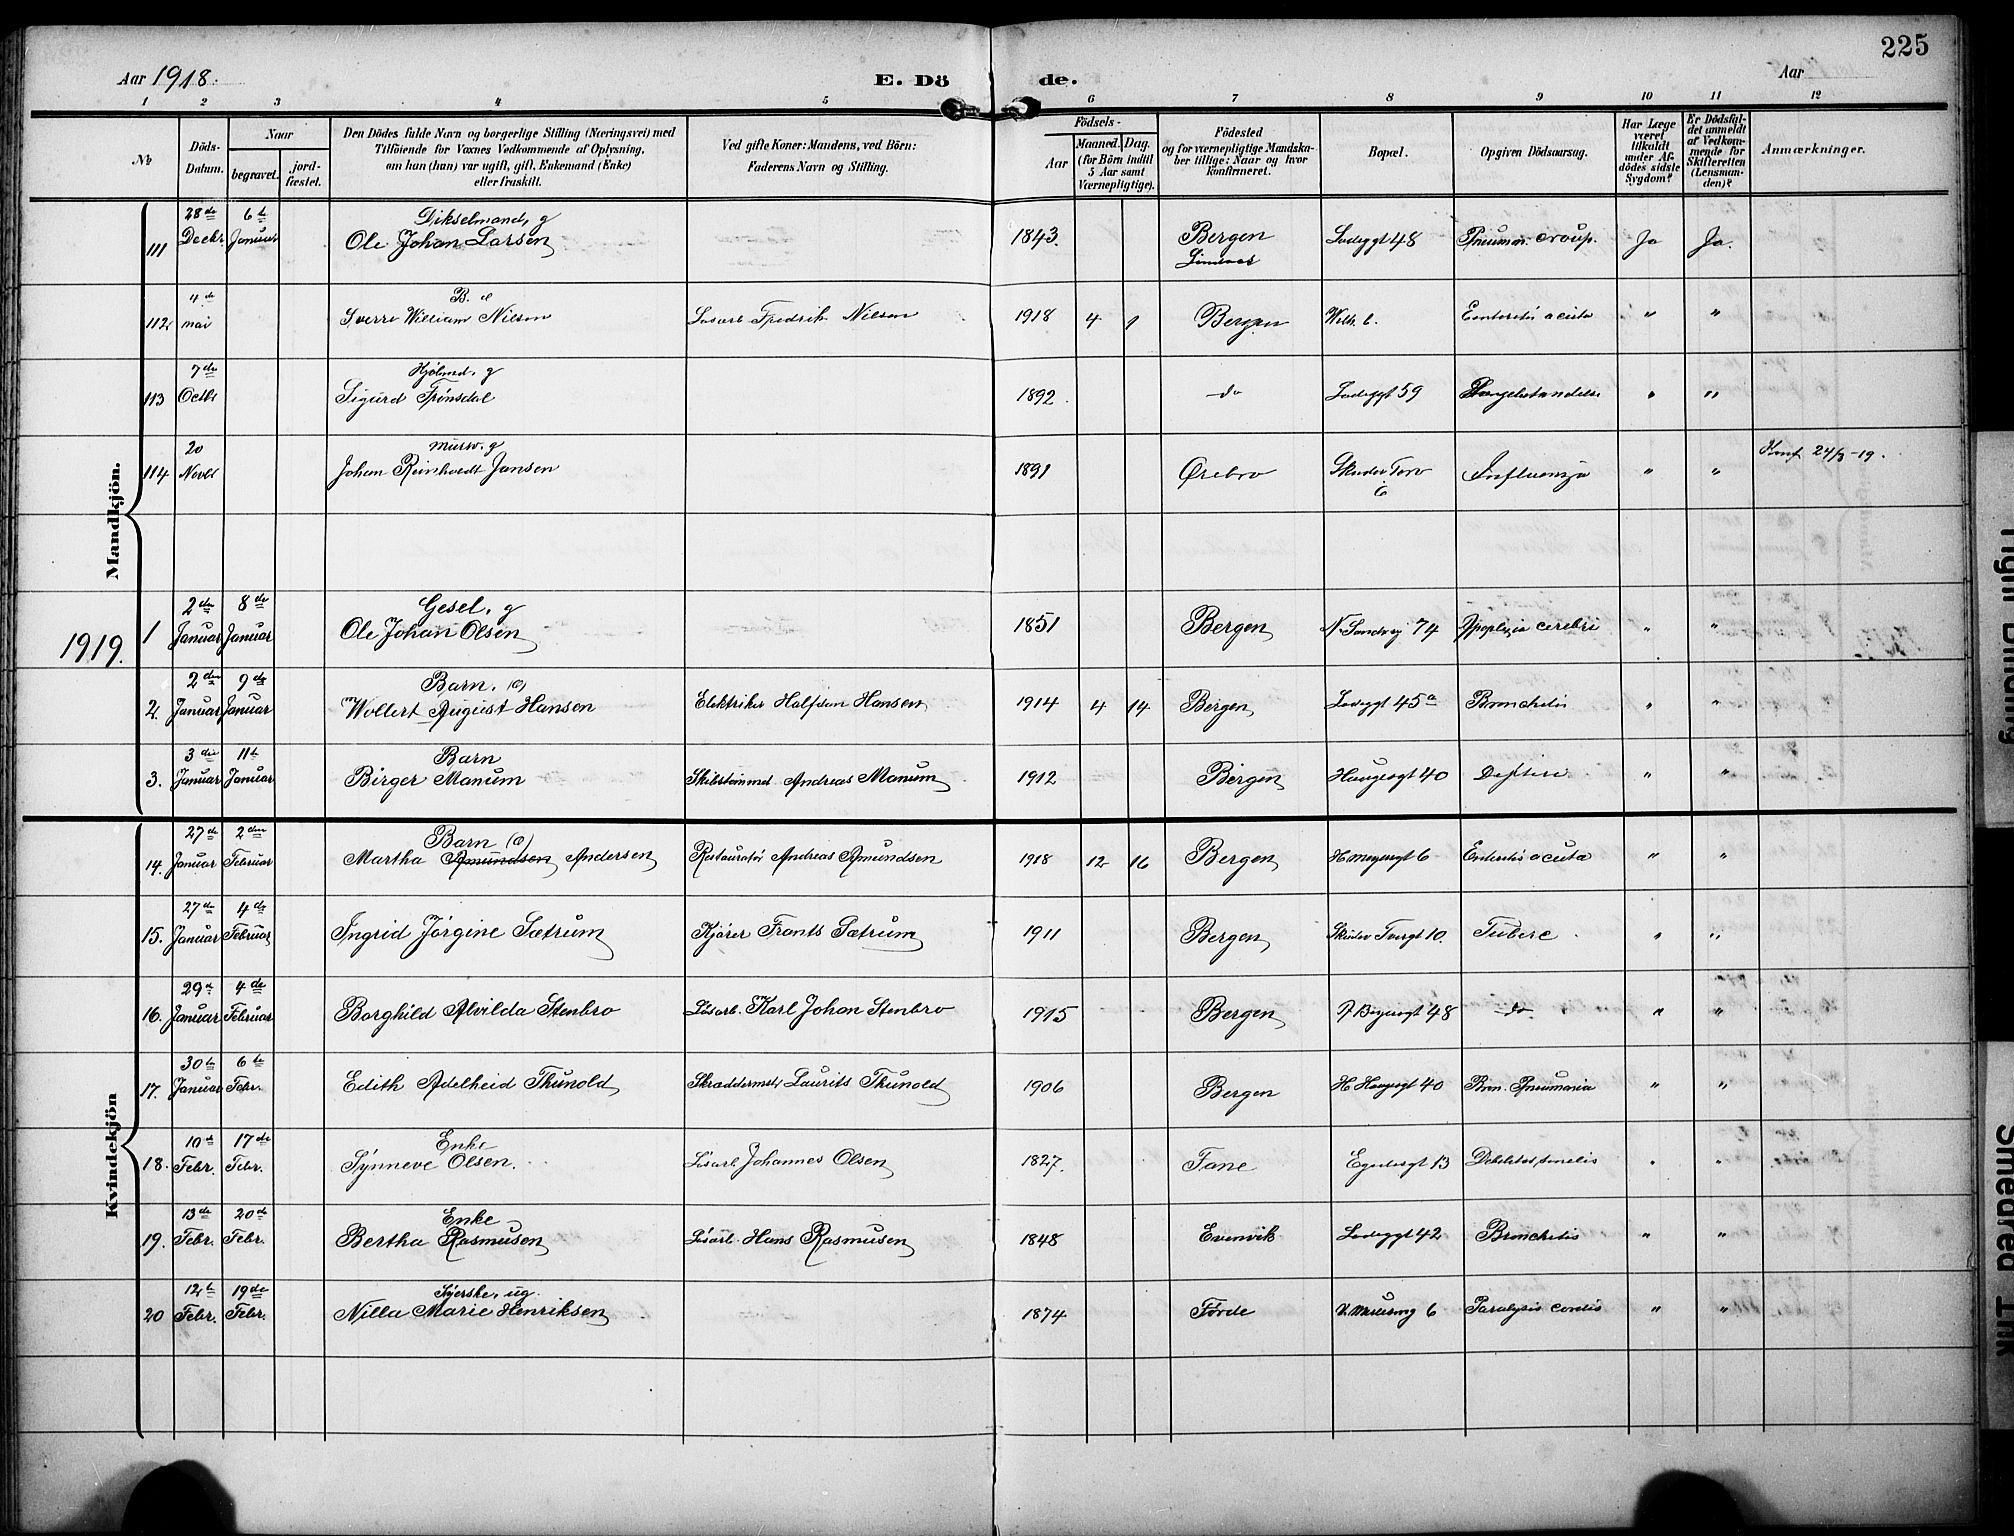 225
Aar 1918.
E. Dö de.
Aar
1 2 3 4 5 6 7 8 9 10 11 12
No
Döds-Datum.
Naar
begravet.
jord-fæstet.
Den Dödes fulde Navn og borgerlige Stilling (Næringsvei) med
Tilföiende for Voxnes Vedkommende af Oplysning,
om han (hun) var ugift, gift, Enkemand (Enke)
eller fraskilt.
Ved gifte Koner: Mandens, ved Börn:
Faderens Navn og Stilling.
Födsels-
Aar
Maaned. Dag.
(for Börn indtil
5 Aar samt
Værnepligtige).
Födested
og for værnepligtige Mandska-
ber tillige: Naar og hvor
konfirmeret.
Bopæl.
Opgiven Dödsaarsag.
Har Læge
været
tilkaldt
under Af-
dödes sidste
Sygdom?
Er Dödsfal-
det anmeldt
af Vedkom-
mende for
Skifteretten
(Lensman-
den)?
Anmærkninger.
Mandkjön.
111 28de Decbr 6te Januar Ole Johan Larsen 1843. Bergen Ladeggt 48 Pneumon. croup. Ja Ja.
112 4de mai B. Sverre William Nilsen Løsarb. Fredrik Nilsen 1918 4 9 Bergen Enteritis acuta " "
113 7de Octbr g Sigurd Trønsdal 1892. do Ladeggt 59 " "
114 20 Novbr g Johan Reinholdt Jansen 1891 Ørebro Skuder Torv 6 Influensa " " 24/3-19.
1919.
1 2den Januar 8de Januar g Ole Johan Olsen 1851 Bergen N. Sandvg 74 Apoplexia cerebri " "
2. 2den Januar 9de Januar Barn. Wollert August Hansen Elektriker Halfdan Hansen 1914 4 14 Bergen Ladeggt 45a Bronchitis " "
3. 3die Januar 11te Januar Barn Birger Manum Andreas Manum 1912 Bergen Haugesgt 40 Difteri " "
Kvindekjön
14. 27de Januar 2den Februar Barn Martha Amundsen Andersen Restauratør Andreas Amundsen 1918 12 16 Bergen H. Meyersgt 6 Enteritis acuta " "
15. 27de Januar 4de Februar Ingrid Jørgine Sætrum Kjører Frants Sætrum 1911 Bergen Skudev Tvergt 10. Tuberc. " "
16. 29de Januar 4de Februar Borghild Alvilda Stenbro Løsarb. Karl Johan Stenbro 1915 Bergen 48 do " "
17. 30te Januar 6te Febr. Edith Adelheid Thunold Skræddermstr Laurits Thunold 1906 Bergen H. Haugesgt 40 Bron. Pneumonia " "
18. 10de Febr. 17de Febr. Enke Synneve Olsen. Løsarb Johannes Olsen 1827. Fane Egedesgt 13 Debilitas senilis " "
19. 13de Febr. 20de Febr. Enke Bertha Rasmusen Løsarb. Hans Rasmusen 1848 Evenvik Ladeggt 42 Bronchitis " "
20 12te Febr. 19de Febr. Syerske, ug. Nilla Marie Henriksen 1874 Førde 6 Paralysis cordis " "
Tight Binding
Smeared Ink